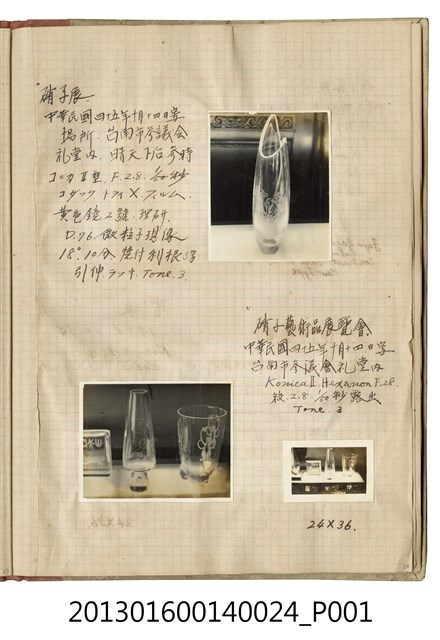 硝子展
中華民國四五年十月十四日寫
場所 台南市参議会
礼堂内 晴天下后参時
コニカⅡ型 F.2.8
コダック トライX フィルム
黄色鏡2號 理研
D.76 微粒子現像
18° 10分 焼付利根3号
引伸 ラッキ Tone.3
硝子藝術品展覽會
中華民國四五年十月十四日寫
台南市参議會礼堂内
Konica Ⅱ Hexanon F.2.8
絞2.8 秒露出
Tone. 3
24X36
24X36.
201301600140024_P001